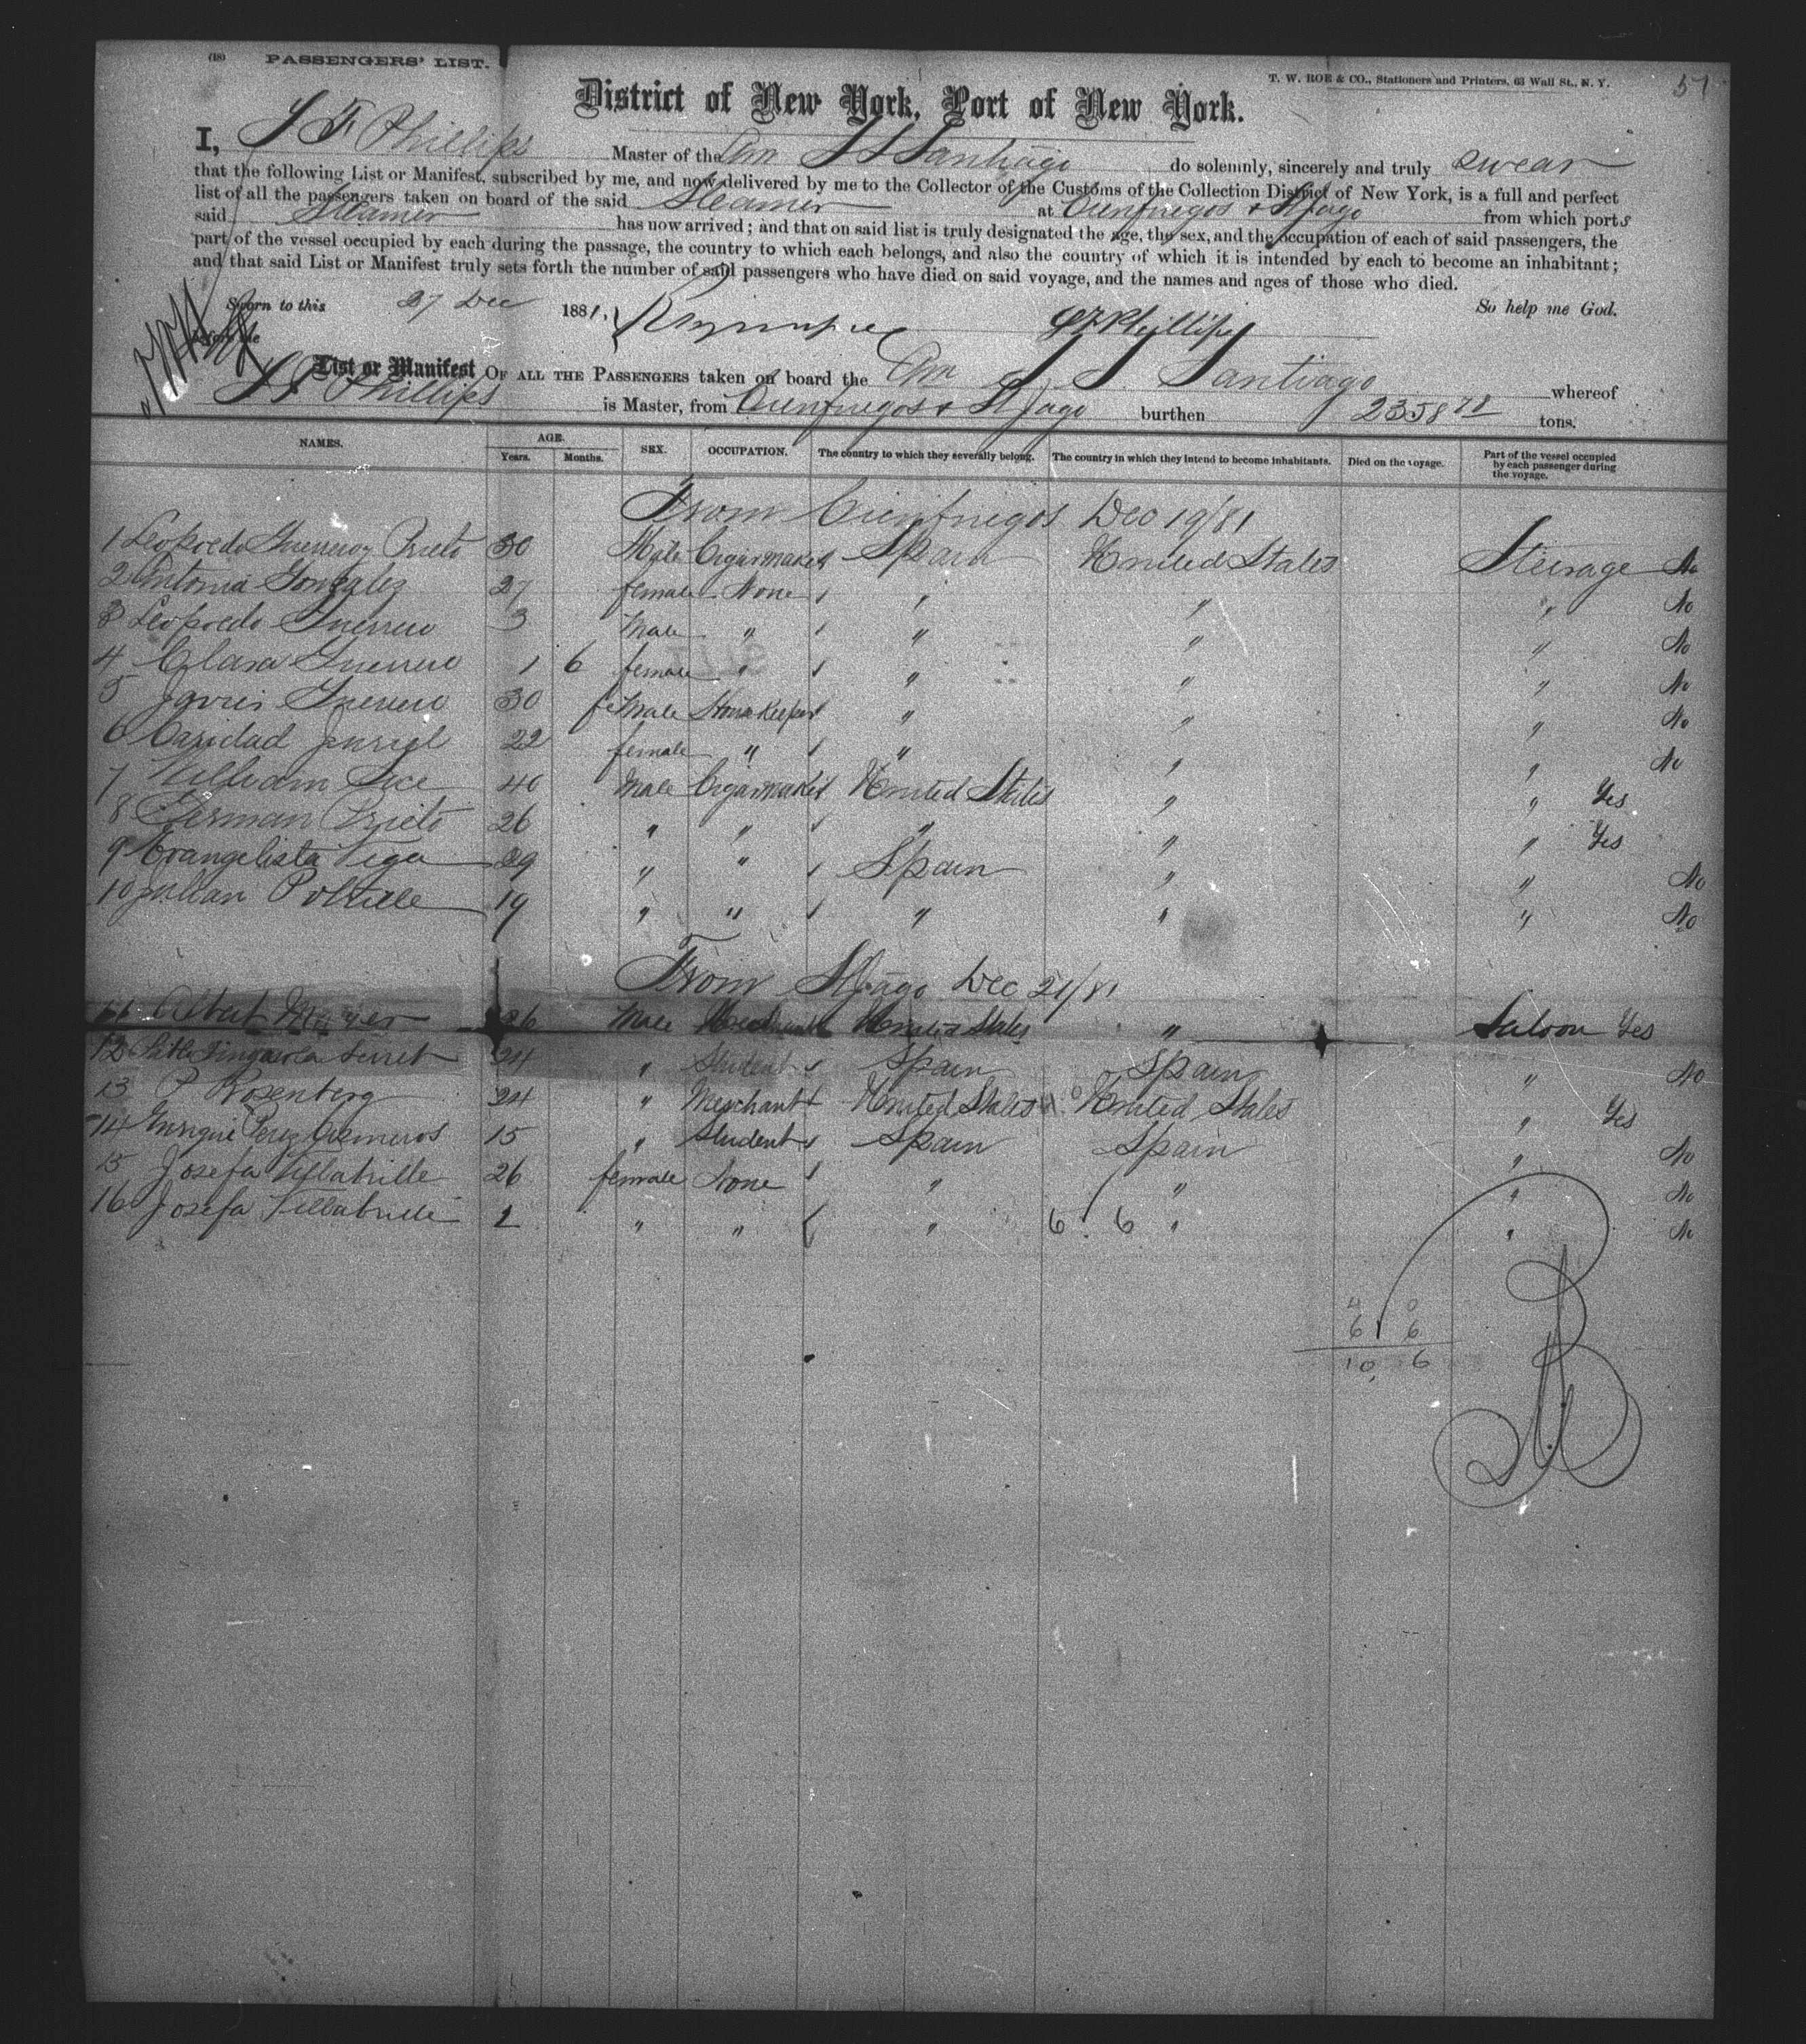 (18) PASSENGERS' LIST.
T. W. ROE & CO., Stationers and Printers, 63 Wall St., N. Y.
51
District of New York, Port of New York.
I, S F Phillips Master of the Am S S Santiago do solemnly, sincerely and truly swear
that the following List or Manifest, subscribed by me, and now delivered by me to the Collector of the Customs of the Collection District of New York, is a full and perfect
list of all the passengers taken on board of the said Steamer at Cienfuegos & St Jago from which ports
said Steamer has now arrived; and that on said list is truly designated the age, the sex, and the occupation of each of said passengers, the
part of the vessel occupied by each during the passage, the country to which each belongs, and also the country of which it is intended by each to become an inhabitant;
and that said List or Manifest truly sets forth the number of said passengers who have died on said voyage, and the names and ages of those who died.
So help me God.
Sworn to this 27 Dec 1881, SF Phillips
before me
List or Manifest OF ALL THE PASSENGERS taken on board the Am S S Santiago whereof
S F Phillips is Master, from Cienfuegos & St Jago burthen 2358 78 tons.
NAMES. AGE. Years. Months. SEX. OCCUPATION. The country to which they severally belong. The country in which they intend to become inhabitants. Died on the voyage. Part of the vessel occupied by each passenger during the voyage.
From Cienfuegos Dec 19/81
1 Leopoldo Guerrero y Prieto 30 Male Cigarmaker Spain United States Steerage No
2 Antonia Gonzalez 27 female None " " " No
3 Leopoldo Guerrero 3 Male " " " " No
4 Clara Guerrero 1 6 female " " " " No
5 Guerrero 30 feMale Housekeeper " " " No
6 Caridad 22 female " " " " No
7 William 40 Male Cigarmaker United States " " Yes
8 German Prieto 26 " " " " " Yes
9 Evangelista Vega 29 " " Spain " " No
10 Julian 19 " " " " " No
From St Jago Dec 21/81
11 Albert 26 Male Merchant United States " Saloon Yes
12 Serret 24 " Student Spain Spain " No
13 P Rosenberg 24 " Merchant United States United States " Yes
14 Enrique Perez Cisneros 15 " Student Spain Spain " No
15 Josefa Villabrille 26 female None " " " No
16 Josefa Villabrille 1 " " " 6 6 " " No
4 0
6 6
10 6